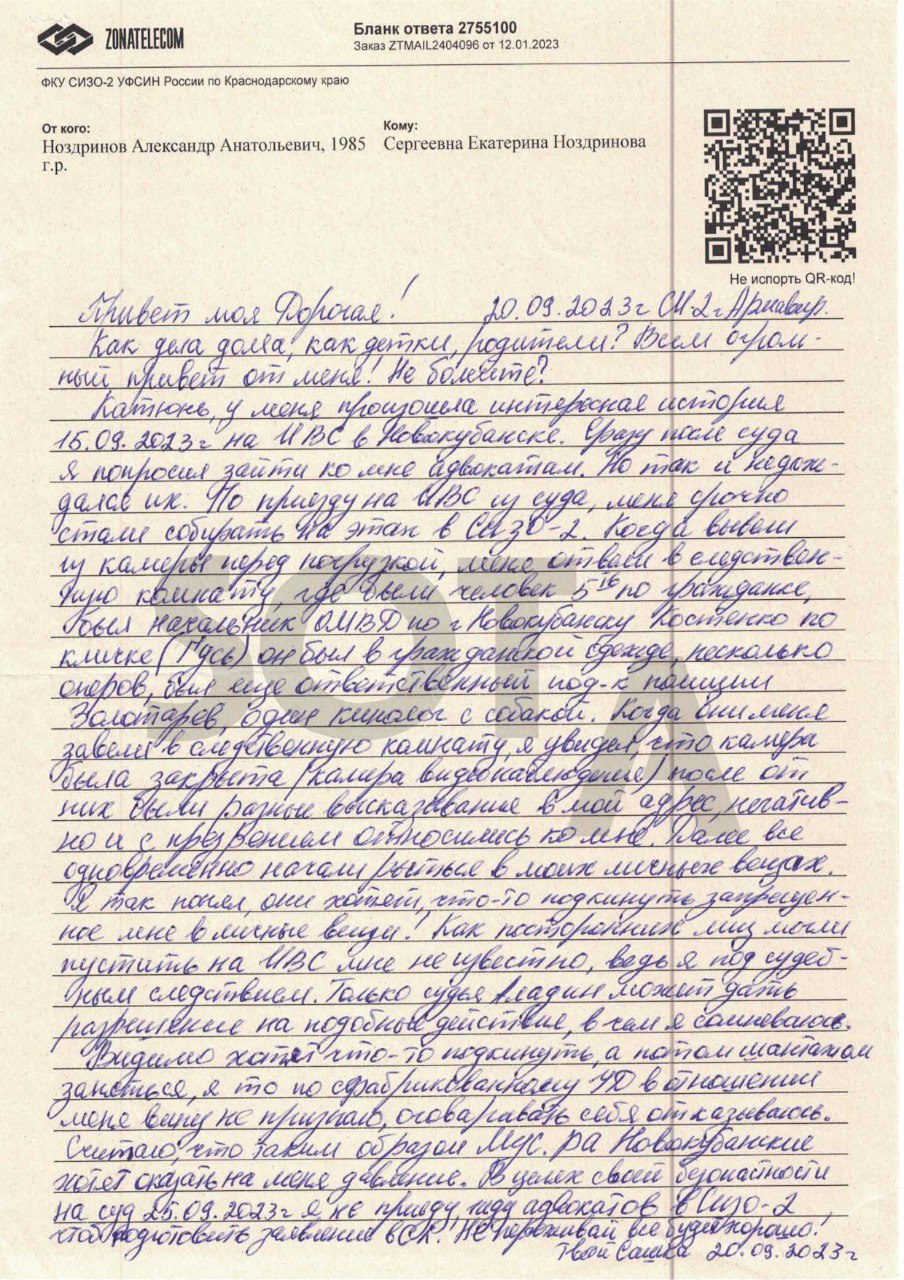 ZONATELECOM
Бланк ответа 2755100
Заказ ZTMAIL2404096 от 12.01.2023
ФКУ СИЗО-2 УФСИН России по Краснодарскому краю
От кого:
Ноздринов Александр Анатольевич, 1985
г.р.
Кому:
Сергеевна Екатерина Ноздринова
Не испорть QR-код!
Привет моя Дорогая! 20.09.2023г СИ-2 г Армавир.
Как дела дома, как детки, родители? Всем огром-
ный привет от меня! Не болеите?
Катюнь, у меня произошла интересная история
15.09.2023г на ИВС в Новокубанске. Сразу после суда
я попросил зайти ко мне адвокатам. Но так и недож-
дался их. По приезду на ИВС из суда, меня срочно
стали собирать на этап в СИЗО-2. Когда вывели
из камеры перед погрузкой, меня отвели в следствен-
ную комнату, где были человек 5 по гражданке,
Был начальник ОМВД по г Новокубанску Костенко по
кличке (Гусь) он был в гражданской одежде, несколько
оперов, был еще ответственный под-к полиции
Золотарев один кинолог с собакой. Когда они меня
завели в следственную комнату, я увидел, что камера
была закрыта (камера видеонаблюдения) после от
них были разные высказывания в мой адрес, негатив-
но и с презрением относились ко мне. Далее все
одновременно начали рыться в моих личных вещах.
Я так понял, они хотят, что-то подкинуть запрещен-
ное мне в личные вещи! Как посторонних лиц могли
пустить на ИВС мне не известно, ведь я под судеб-
ным следствием. Только судья Аладин может дать
разрешение на подобные действие, в чем я сомневаюсь.
Видимо хотят что-то подкинуть, а потом шантажом
заняться, я то по сфабрикованному УД в отношении
меня вину не признаю, оговаривать себя отказываюсь.
Считаю, что таким образом Мус.ра Новокубанские
хотят оказать на меня давление. В целях своей безопастности
на суд 25.09.2023г я не приеду, жду адвокатов в Сизо-2
чтоб подготовить заявления в СК. Не переживай все будет хорошо!
Твой Сашка 20.09.2023г
SOTA